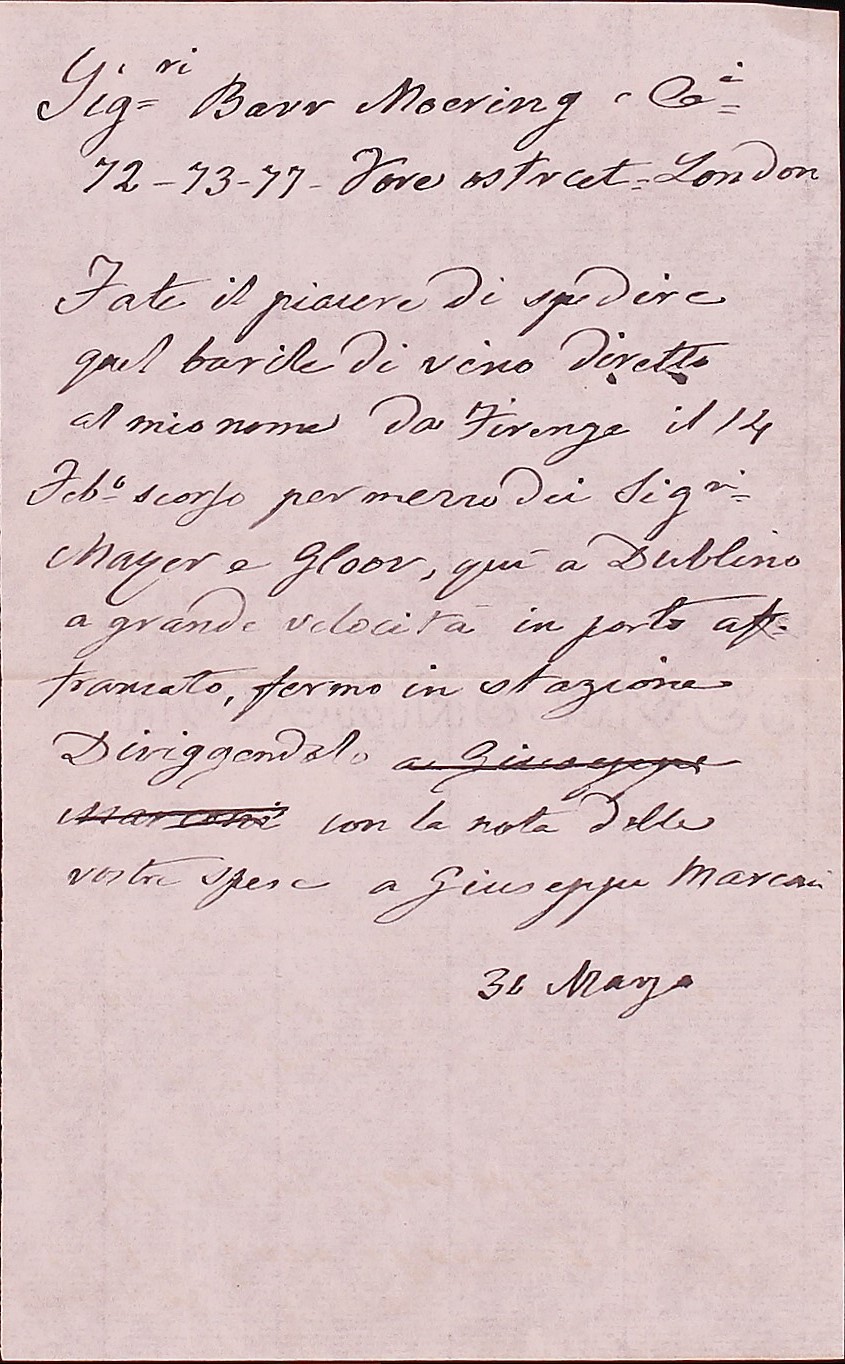 Sig=ri Barr Moering e Ci=
72-73-77- Fore Street= London
Fate il piacere di spedire
quel barile di vino diretto
al mio nome da Firenze il 14
Febo scorso per mezzo dei Sigri=
Mayer e Gloor, quì a Dublino
a grande velocità in porto af-
francato, fermo in stazione
Diriggendolo a Giuseppe
Marconi con la nota delle
vostre spese a Giuseppe Marconi
Marzo